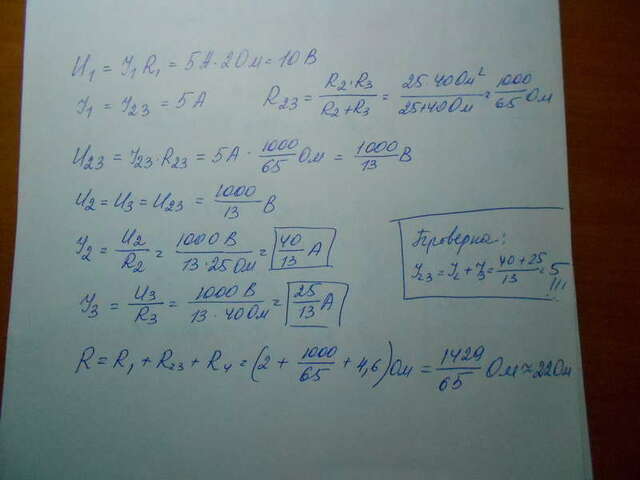 U₁ = I₁R₁ = 5А·2Ом = 10 В
I₁ = I₂₃ = 5 А
R₂₃ = R₂·R₃ / R₂+R₃ = 25·40 Ом² / 25+40 Ом = 1000/65 Ом
U₂₃ = I₂₃·R₂₃ = 5А · 1000/65 Ом = 1000/13 В
U₂ = U₃ = U₂₃ = 1000/13 В
I₂ = U₂/R₂ = 1000 В / 13·25 Ом = 40/13 А
I₃ = U₃/R₃ = 1000 В / 13·40 Ом = 25/13 А
Проверка:
I₂₃ = I₂ + I₃ = 40+25 / 13 = 5 !!!
R = R₁ + R₂₃ + R₄ = (2 + 1000/65 + 4,6) Ом = 1429/65 Ом ≈ 22 Ом